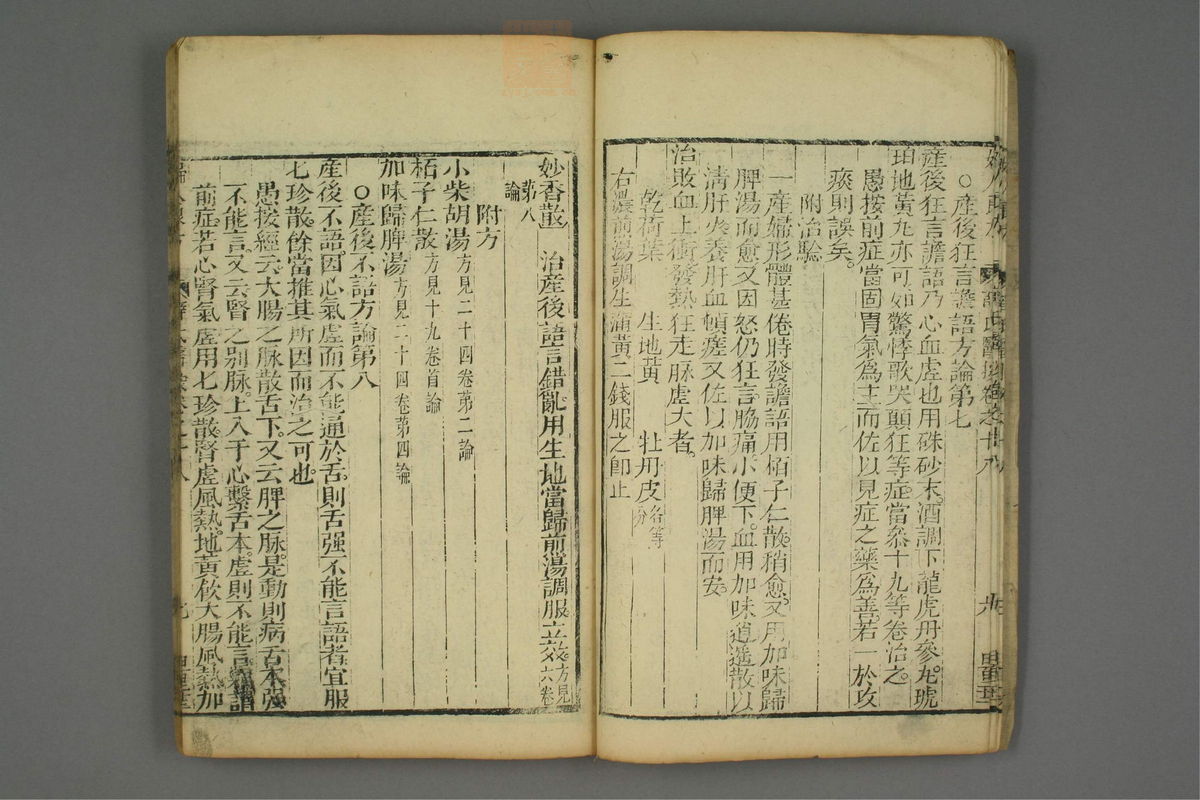 ○產後狂言譫語方論第七
產後狂言譫語乃心血虛也用硃砂末酒調下龍虎丹參丸琥
珀地黃丸亦可如驚悸歌哭顛狂等症當叅十九等卷治之
愚按前症當固胃氣為主而佐以見症之藥為善若一於攻
痰則誤矣
附治驗
一產婦形體甚倦時發譫語用栢子仁散稍愈又用加味歸
脾湯而愈又因怒仍狂言脇痛小便下血用加味逍遙散以
清肝火養肝血頓瘥又佐以加味歸脾湯而安
治敗血上衝發熱狂走脉虛大者
乾荷葉 生地黃 牡丹皮各等分
右濃煎湯調生蒲黃二錢服之即止
妙香散 治產後語言錯亂用生地當歸煎湯調服立效方見六卷
第八論
附方
小柴胡湯方見二十四卷第二論
栢子仁散方見十九卷首論
加味歸脾湯方見二十四卷第四論
○產後不語方論第八
產後不語因心氣虛而不能通於舌則舌强不能言語者宜服
七珍散餘當推其所因而治之可也
愚按經云大腸之脉散舌下又云脾之脉是動則病舌本强
不能言又云腎之別脉上入于心繫舌本虛則不能言
前症若心腎氣虛用七珍散腎虛風熱地黃飲大腸風熱加